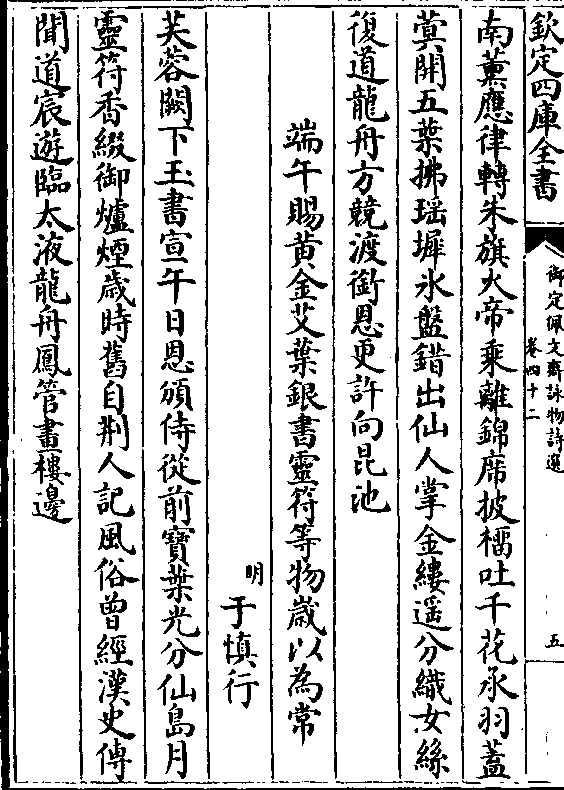 欽定四庫全書
御定佩文齋詠物詩選
卷四十二
五
南薫應律轉朱旗火帝乗離錦席披檽吐千花承羽蓋
蓂開五葉拂瑶墀氷盤錯出仙人掌金縷遥分織女絲
復道龍舟方競渡銜恩更許向昆池
端午賜黄金艾葉銀書靈符等物歲以為常
明
于慎行
芙蓉闕下玉書宣午日恩頒侍從前寶葉光分仙島月
靈符香綴御爐煙歲時舊自荆人記風俗曾經漢史傳
聞道宸遊臨太液龍舟鳳管書樓邊